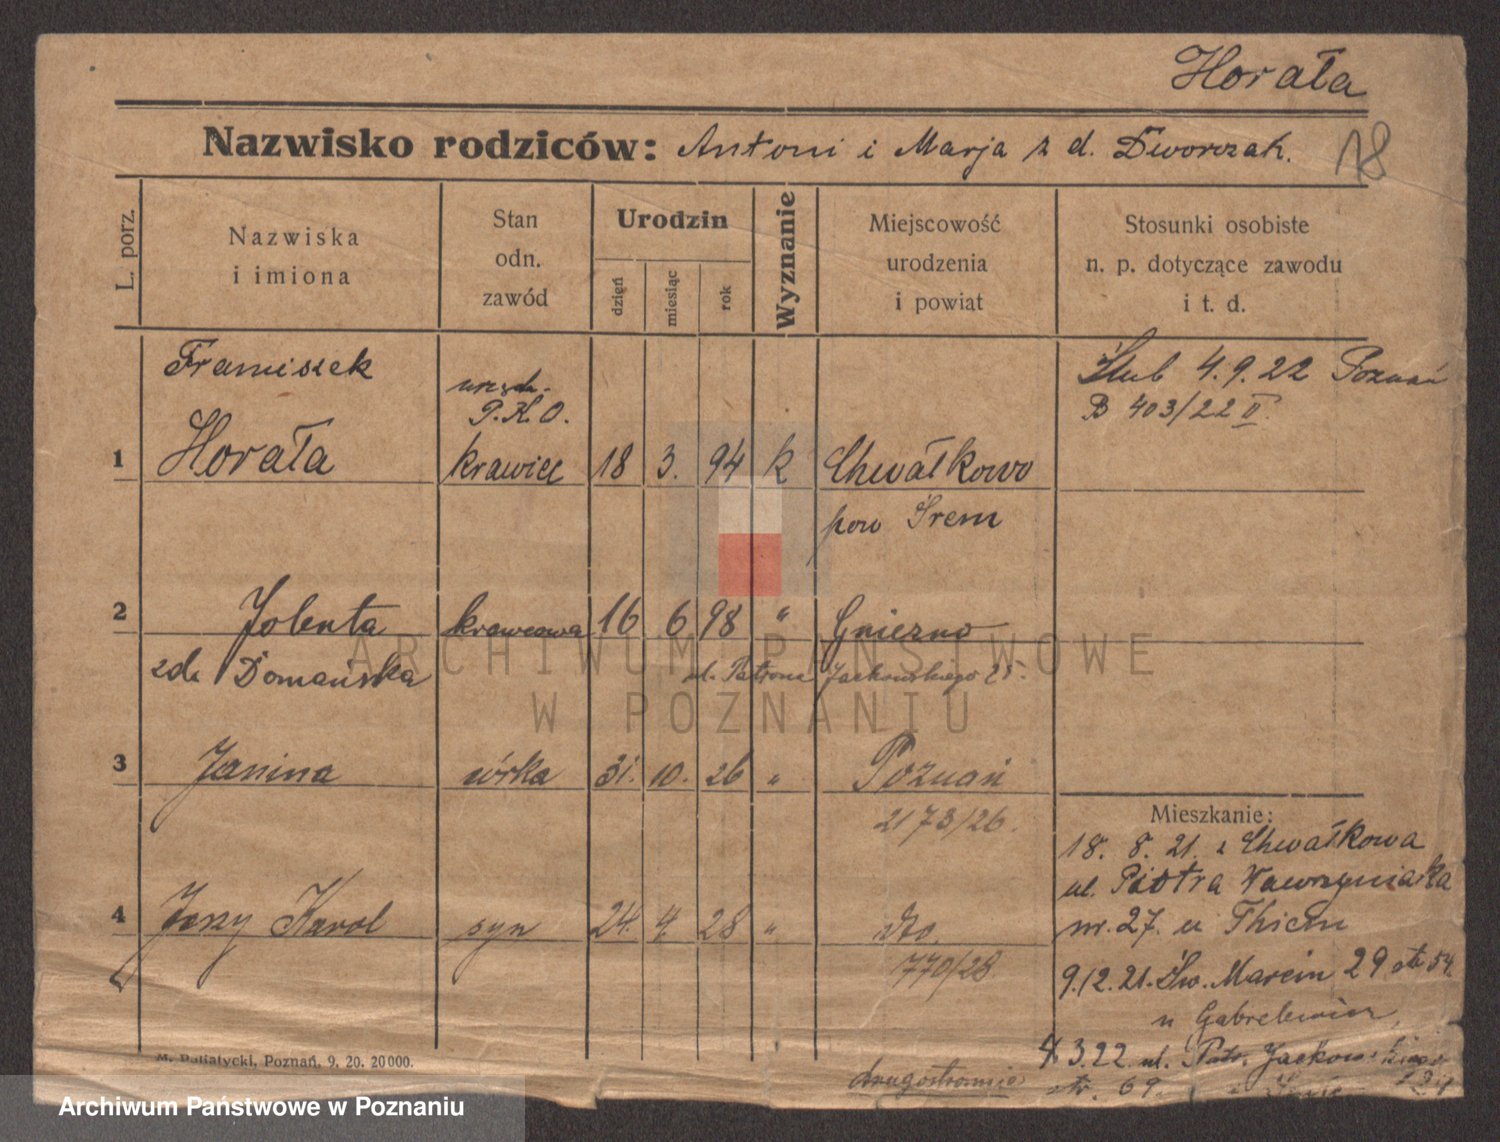 Horała
Nazwisko rodziców: Antoni i Marja z d. Dworczak.
18
L. porz.
Nazwiska
i imiona
Stan
odn.
zawód
Urodzin
dzięń
miesiąc
rok
Wyznanie
Miejscowość
urodzenia
i powiat
Stosunki osobiste
n. p. dotyczące zawodu
i t. d.
Franciszek
urzędn.
P.K.O.
Ślub 4.9.22 Poznań
B 403/22 II.
1 Horała krawiec 18 3. 94 k Chwałkowo
pow Śrem
2 Jolenta krawcowa 16 6 98 " Gniezno
zd. Domańska ul. Patrona Jackowskiego 25.
3 Janina córka 31. 10. 26 " Poznań
2173/26.
Mieszkanie:
18. 8. 21. z Chwałkowa
ul. Piotra Wawrzyniaka
nr. 27. u Thiem
4 Jerzy Karol syn 24. 4 28 " dto.
770/28.
9.12.21. Św. Marcin 29
u Gabrelewicz
3.22. ul. Patr. Jackowskiego
str. 69.
drugostronnie
M. Putiatycki, Poznań, 9. 20. 20000.
ARCHIWUM PAŃSTWOWE
W POZNANIU
Archiwum Państwowe w Poznaniu